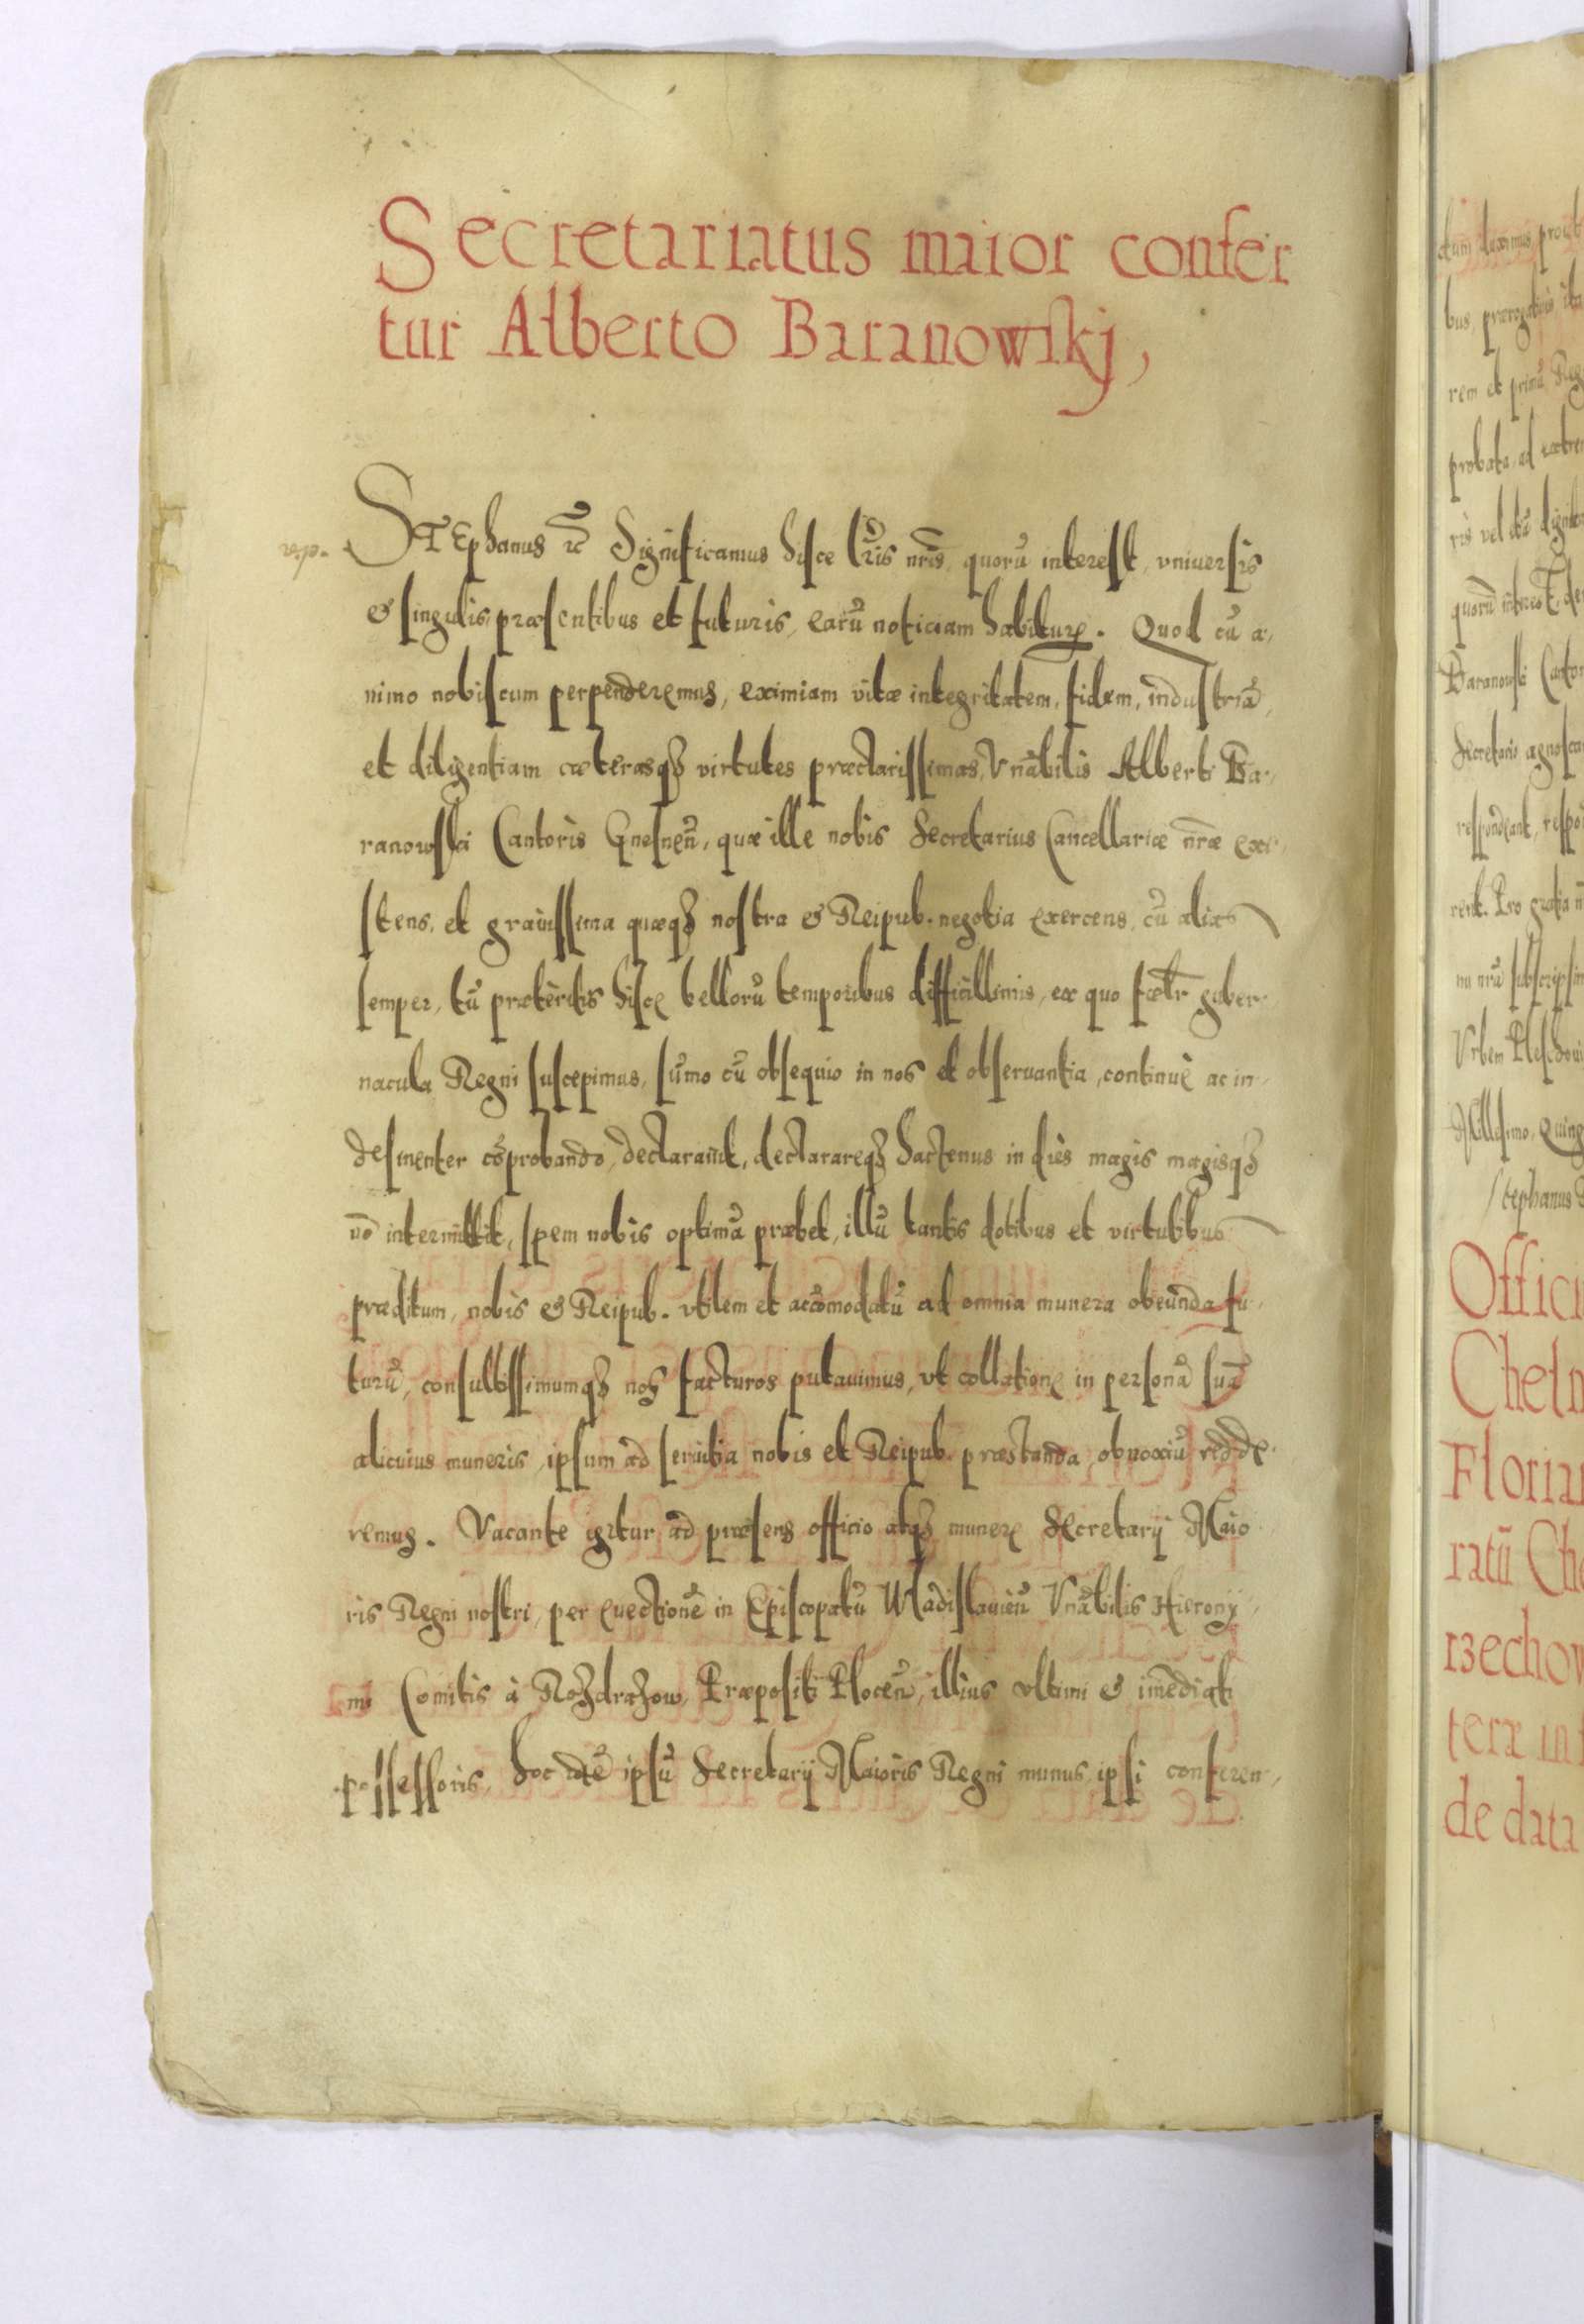 Secretariatus maior confer
tur Alberto Baranowskj,
STEphanus etc̃ Significamus hisce lr̃is nr̃is, quorũ interest, vniuersis
& singulis, præsentibus et futuris, earũ noticiam habiturę. Quod cũ a,
nimo nobiscum perpenderemus, eximiam vitæ integritatem, fidem, industriã,
et diligentiam cæterasqʒ virtutes præclarissimas, Vnãbilis Alberti Ba,
ranowski Cantoris Gnesneñ, quæ ille nobis Secretarius Cancellariæ nr̃æ exi,
stens, et grauissima quæqʒ nostra & Reipub. negotia exercens, cũ alias
semper, tũ præteritis hisce bellorũ temporibus difficillimis, ex quo fæl̃r guber,
nacula Regni suscepimus, sũmo cũ obsequio in nos et obseruantia, continuè ac in,
desinenter cõprobando, declarauit, declarareqʒ hactenus in diès magis magisqʒ
nõ intermittit, spem nobis optimã præbet, illũ tantis dotibus et virtutibus
præditum, nobis & Reipub. vtilem et accõmodatũ ad omnia munera obeunda fu,
turũ, consultissimumqʒ nos facturos putauimus, vt collationę in personã suã
alicuius muneris, ipsum ad seruitia nobis et Reipub. præstanda, obnoxiũ redde,
remus. Vacante igitur ad præsens officio atqʒ munerę Secretarij Maio
ris Regni nostri, per euectionẽ in Episcopatũ Wladislauieñ Vnãbilis Hierony,
mi Comitis à Rozdrazow, Præpositi Ploceñ, illius vltimi & im̃ediati
possessoris, hoc idẽ ipsũ Secretarij Maioris Regni munus, ipsi conferen,
rem et primũ Reg
Baranowski Cantor
Secretario agnoscan
rent. Pro gratia
Stephanus
Offici
Cheln
Florian
ratũ Che
rzechow
teræ in
de data